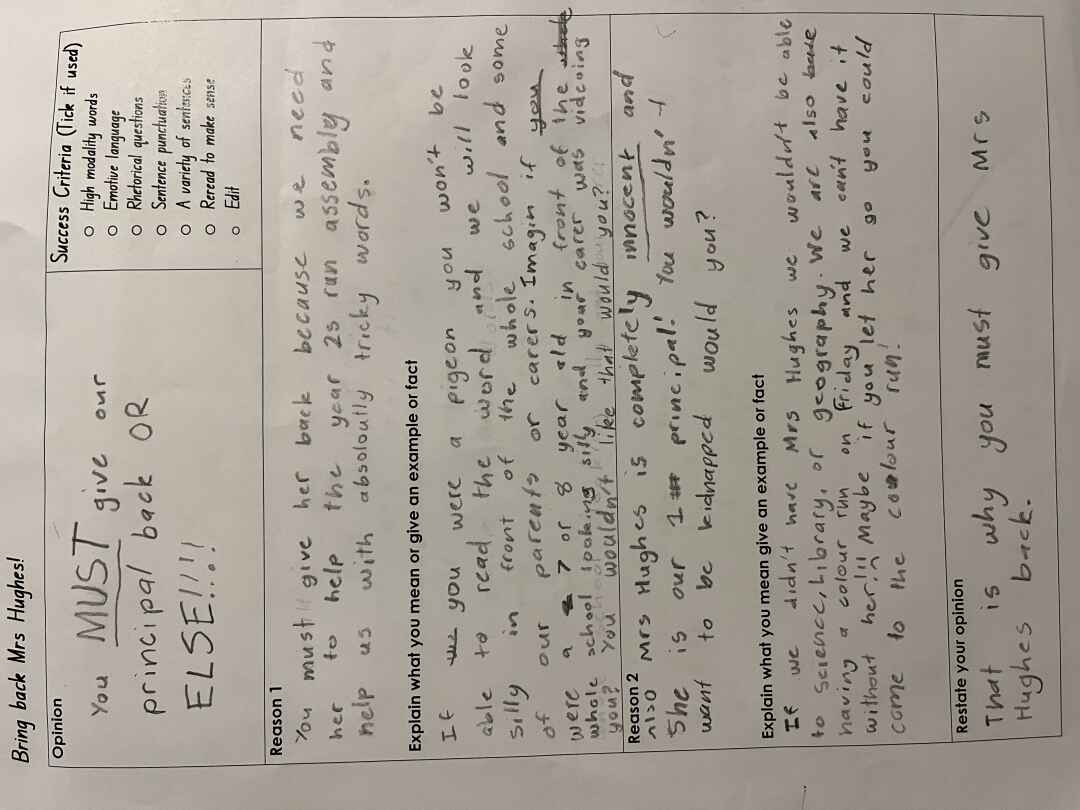 Bring back Mrs Hughes!
Opinion
You MUST give our
principal back OR
ELSE!!!!
Success Criteria (Tick if used)
High modality words
Emotive language
Rhetorical questions
Sentence punctuation
A variety of sentences
Reread to make sense
Edit
Reason 1
You must give her back because we need
her to help the year 2s run assembly and
help us with absoloutly tricky words.
Explain what you mean or give an example or fact
If you were a pigeon you won't be
able to read the word and we will look
silly in front of the whole school and some
of our parents or carers. Imagin if you
were a 7 or 8 year old in front of the whole
whole school looking silly and your carer was videoing
you? You wouldn't like that would you?
Reason 2
Also Mrs Hughes is completely innocent and
She is our 1 principal! You wouldn't
want to be kidnapped would you?
Explain what you mean give an example or fact
If we didn't have Mrs Hughes we wouldn't be able
to science, library, or geography. We are also
having a colour run on Friday and we can't have it
without her!!! Maybe if you let her go you could
come to the coulour run!
Restate your opinion
That is why you must give Mrs
Hughes back.